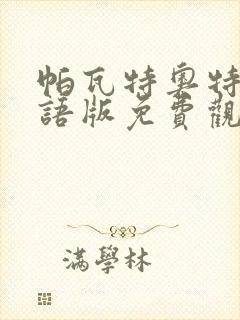 帕瓦特奧特
語版免費觀
滿學林